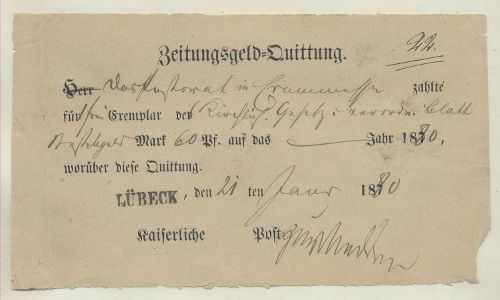 22.
Zeitungsgeld-Quittung.
Herr Das Pastorat in Crummesse zahlte
für Exemplar des Kirchl. Gesetz u verordn. blatt
Bestellgeld Mark 60 Pf. auf das — Jahr 1880,
worüber diese Quittung.
LÜBECK, den 21 ten Janr 1880
Kaiserliche Post-